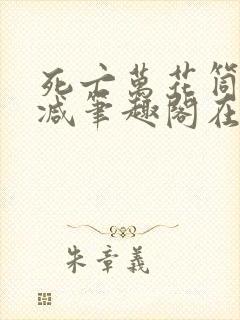 死亡萬花筒
減筆趣閣在
朱章義